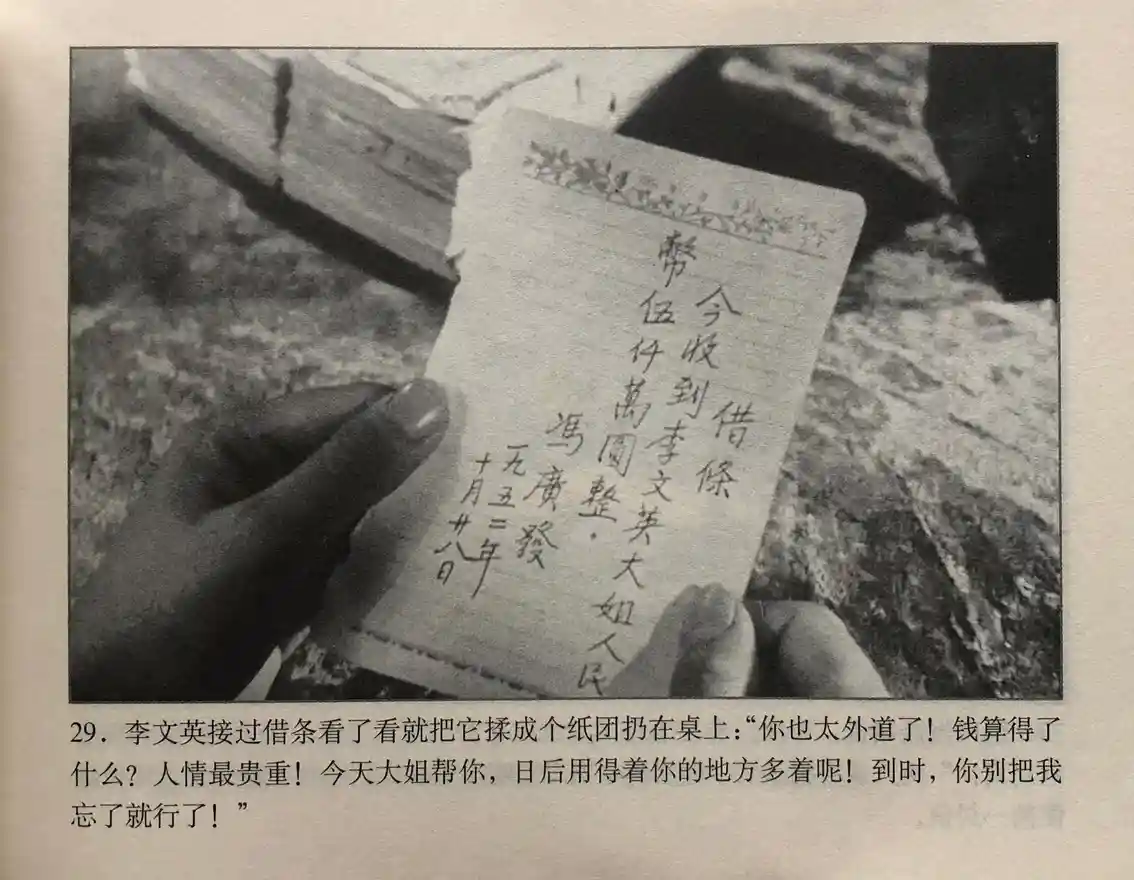 借條
今收到李文英大姐人民
幣伍仟萬圓整.
馮廣發
一九五二年
十月廿八日
29. 李文英接过借条看了看就把它揉成个纸团扔在桌上：“你也太外道了！钱算得了
什么？人情最贵重！今天大姐帮你，日后用得着你的地方多着呢！到时，你别把我
忘了就行了！”